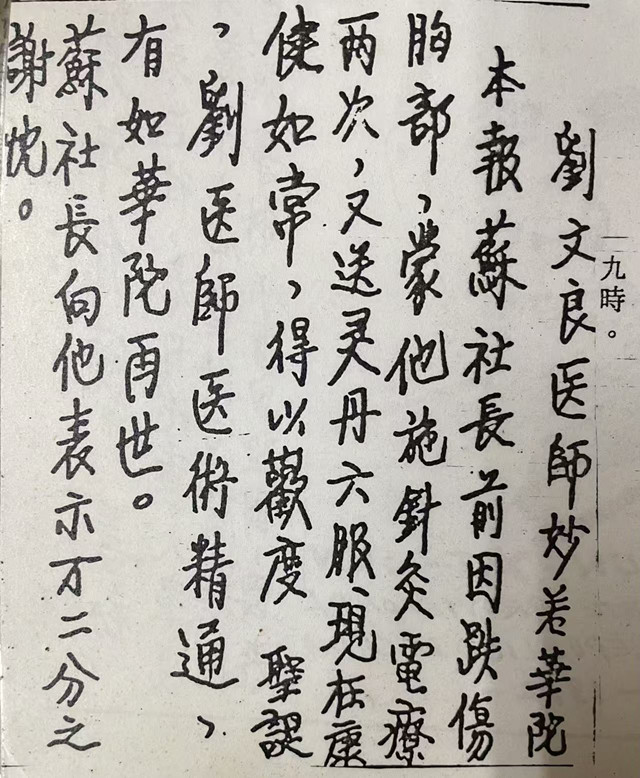 九時。
劉文良医師妙若華陀
本報蘇社長前因跌傷
胸部，蒙他施針灸電療
两次，又送灵丹六服、現在康
健如常，得以歡度 聖誕
，劉医師医術精通，
有如華陀再世。
蘇社長向他表示万二分之
謝忱。